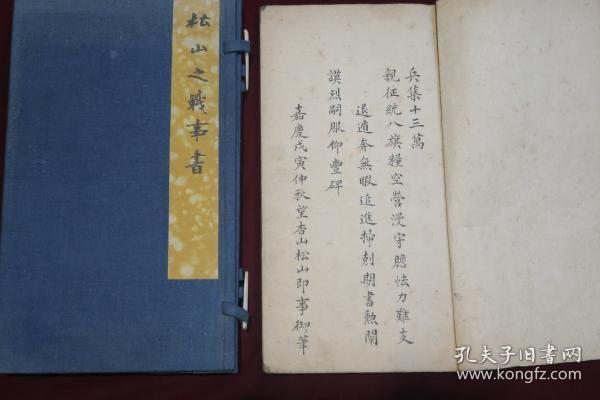 松山之戰事書
兵集十三萬
親征統八旗糧空營漫守膽怯力難支
退遁奔無暇追進掃剋期書勲閘
謨烈嗣服仰豐碑
嘉慶戊寅仲秋望杏山松山即事御筆
孔夫子旧书网
www.kongfz.com